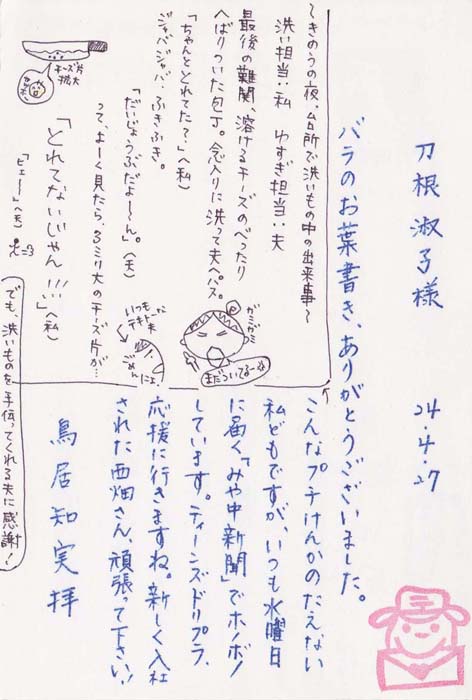 刀根淑子様
24.4.27
バラのお葉書き、ありがとうございました。
～きのうの夜、台所で洗いもの中の出来事～
洗い担当:私 ゆすぎ担当:夫
最後の難関、溶けるチーズのべったり
へばりついた包丁。念入りに洗って夫へパス。
「ちゃんととれてた?」(私)
ジャバジャバ、ふきふき。
「だいじょうぶだよーん。」(夫)
って、よーく見たら、3ミリ大のチーズ片が…
「とれてないじゃん!!!」(私)
「ピエ～」(夫)
チーズ片
拡大
ガミガミ
まだついてるーよ
いつも
テキトー夫
ごめん
でも、洗いものを手伝ってくれる夫に感謝!
こんなプチけんかのたえない
私どもですが、いつも水曜日
に届く「みや中新聞」でホノボノ
しています。ティーンズドリプラ、
応援に行きますね。新しく入社
された西畑さん、頑張って下さい!
鳥居知実 拝